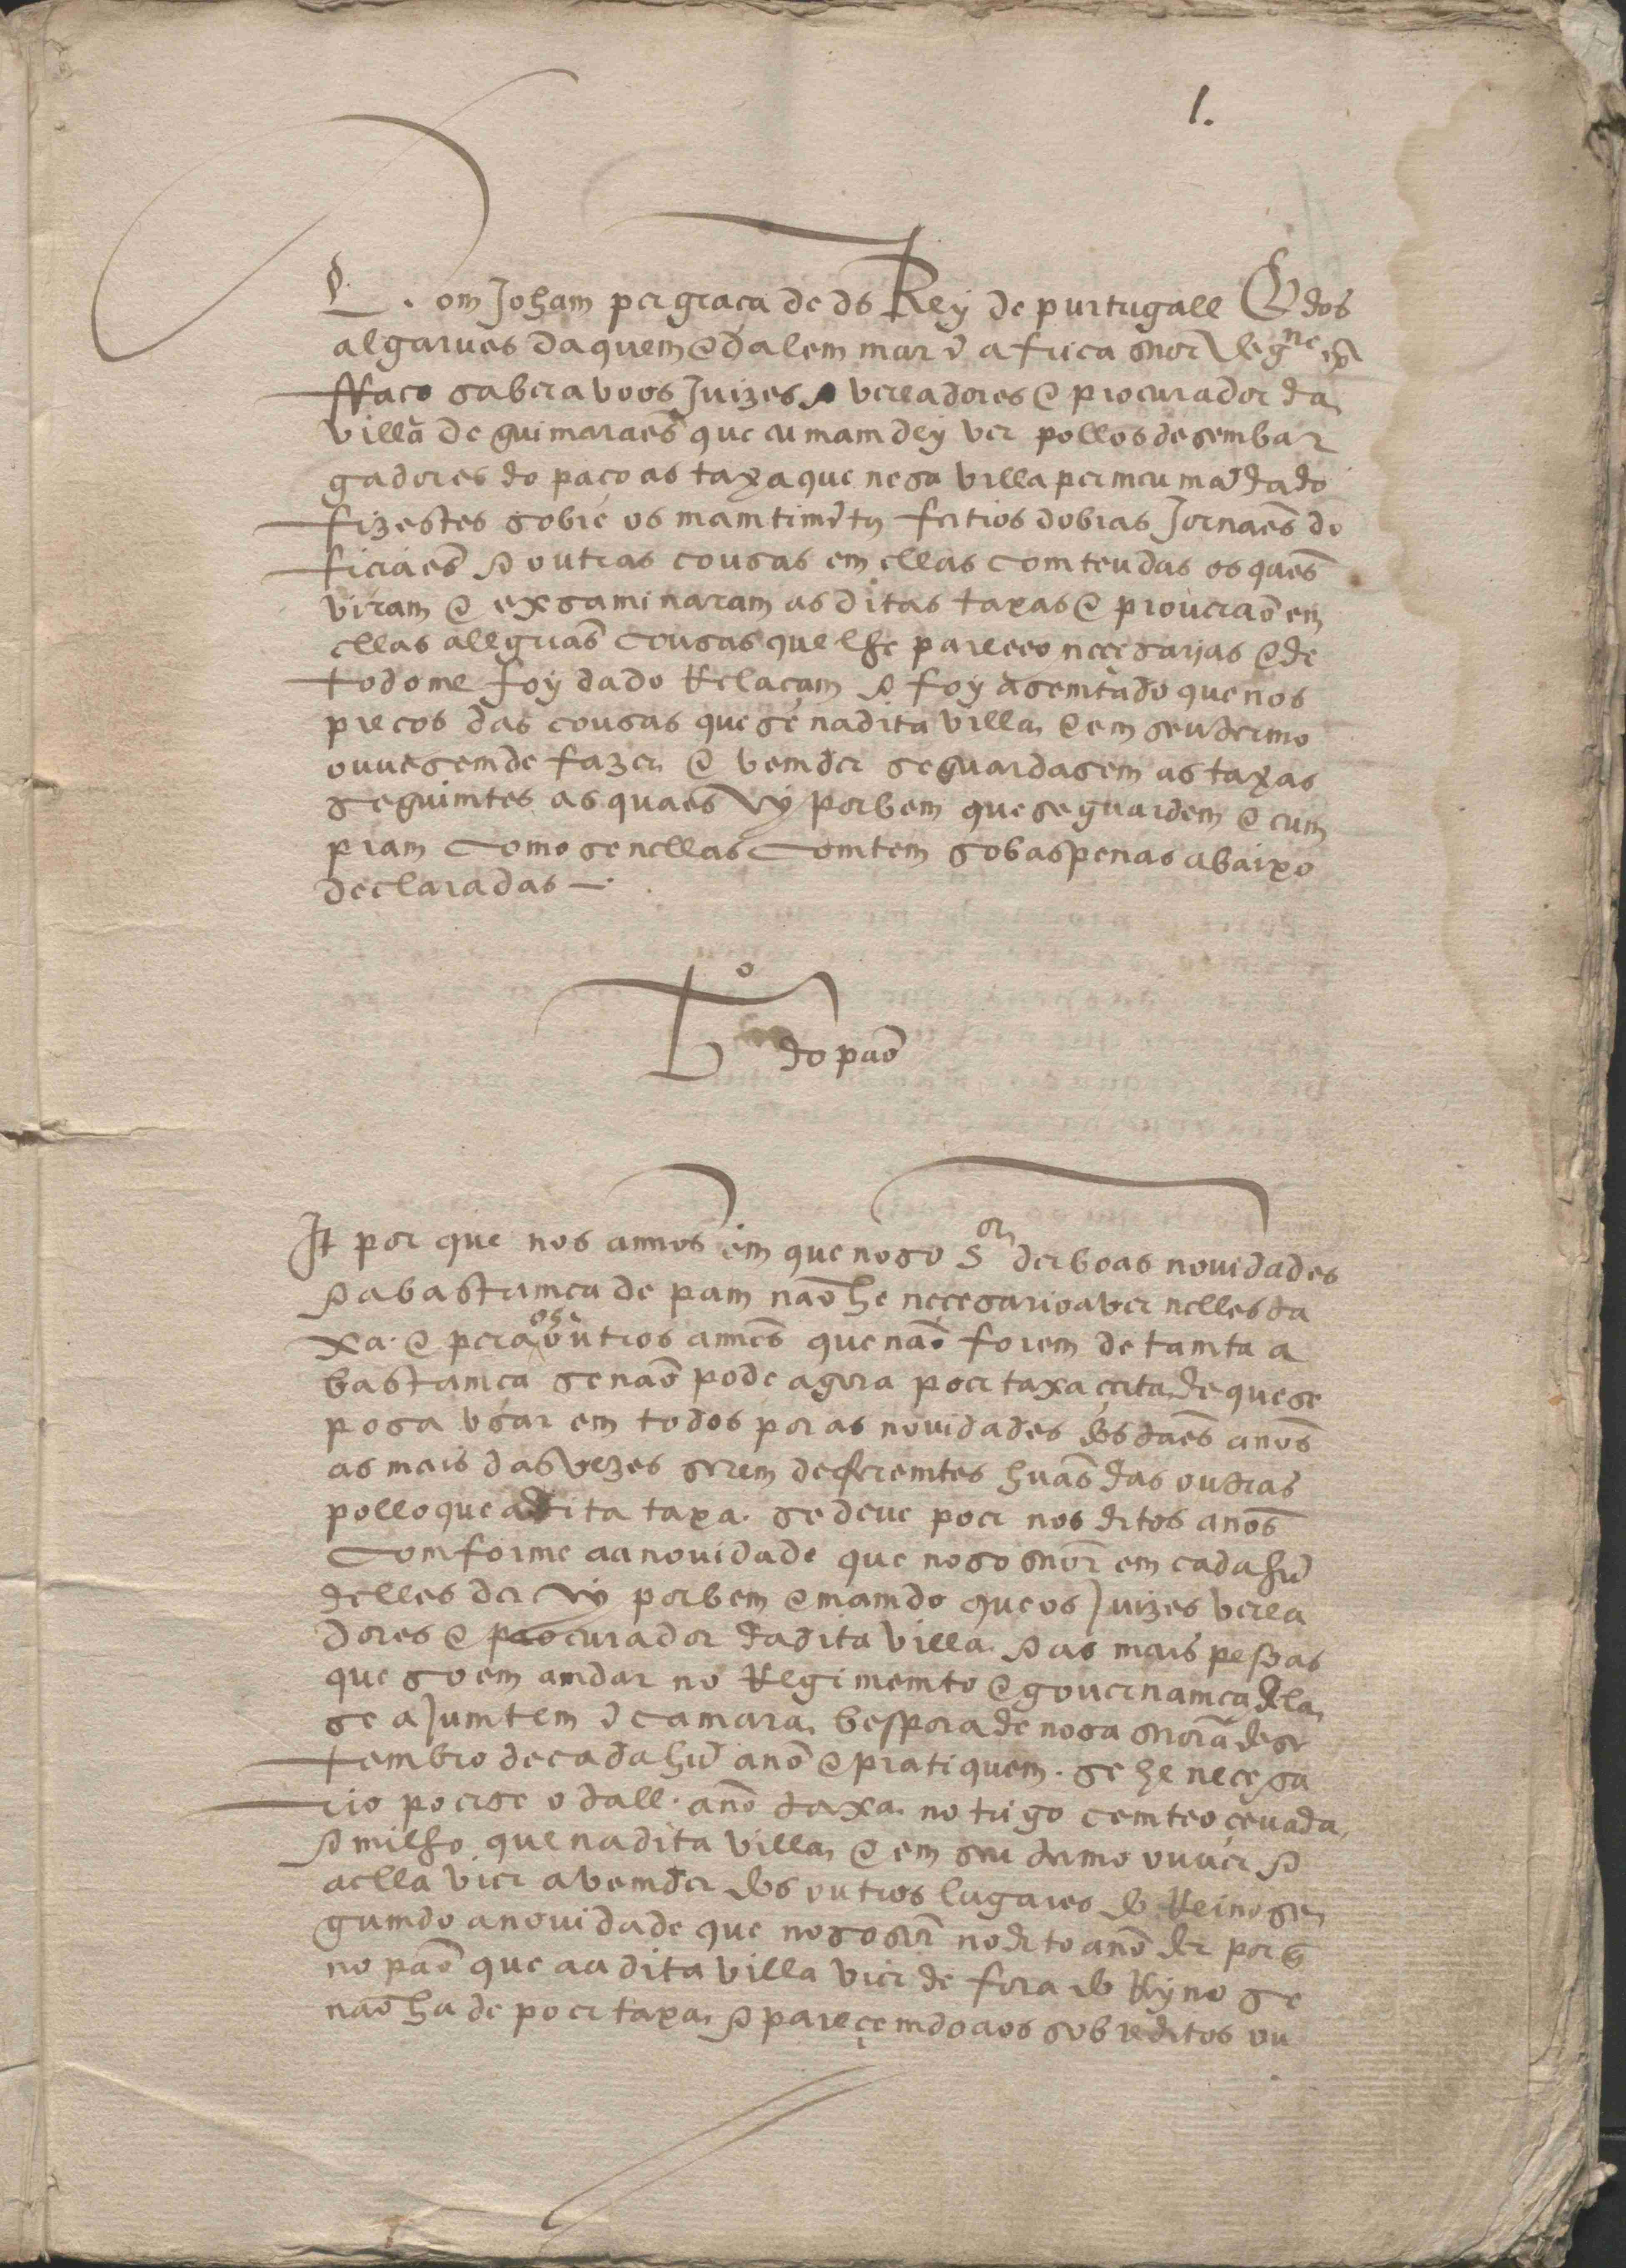 1.
Dom Joham per graça de ds Rey de purtugall E dos
algarves daquem e dalem mar ē africa snor de g^ne
ffaço saber a voos Juizes e vereadores e procurador da
villa de guimaraes que eu mamdey ver pollos desembar
gadores do paço as taxa que nesa villa per meu mādado
fizestes sobre os mamtimētos feitios dobras Jornaes do
ficiaes e outras cousas em ellas comteudas os quaes
viram e exsaminaram as ditas taxas e proveraō em
ellas allguas cousas que lhe pareceo necesarjas e de
todo me foy dado Relaçam e foy asemtado que nos
preços das cousas que se na dita villa e em seu termo
ouvesem de fazer e vemder se guardasem as taxas
seguimtes as quaes ey por bem que se guardem e cum
pram como se nellas comtem sob as penas abaixo
declaradas —
T^o do paō
It por que nos annos em que noso S^or der boas novidades
e abastamça de pam naō he neçesario aver nelles ta
xa e pera os outros annos que naō forem de tamta a
bastamça se naō pode agora poer taxa çerta de que se
posa usar em todos por as novidades dos taes anos
as mais das vezes serem deferemtes huas das outras
pollo que a dita taxa se deve poer nos ditos anos
comforme aa novidade que noso snor em cada hū
delles der ey por bem e mamdo que os Juizes verea
dores e procurador da dita villa e as mais pesoas
que soem amdar no Regimemto e governamça dela
se aJumtem ē camara bespora de nosa snora de se
tembro de cada hū ano e pratiquem se he neçesa
rio poerse o tall ano taxa no trigo cemteo çevada
e milho que na dita villa e em seu termo ouver e
a ella vier a vemder dos outros lugares do Reino se
gumdo a novidade que noso snor no dito ano der por q̄
no paō que aa dita villa vier de fora do Reyno se
naō ha de poer taxa e pareçemdo aos sobreditos ou